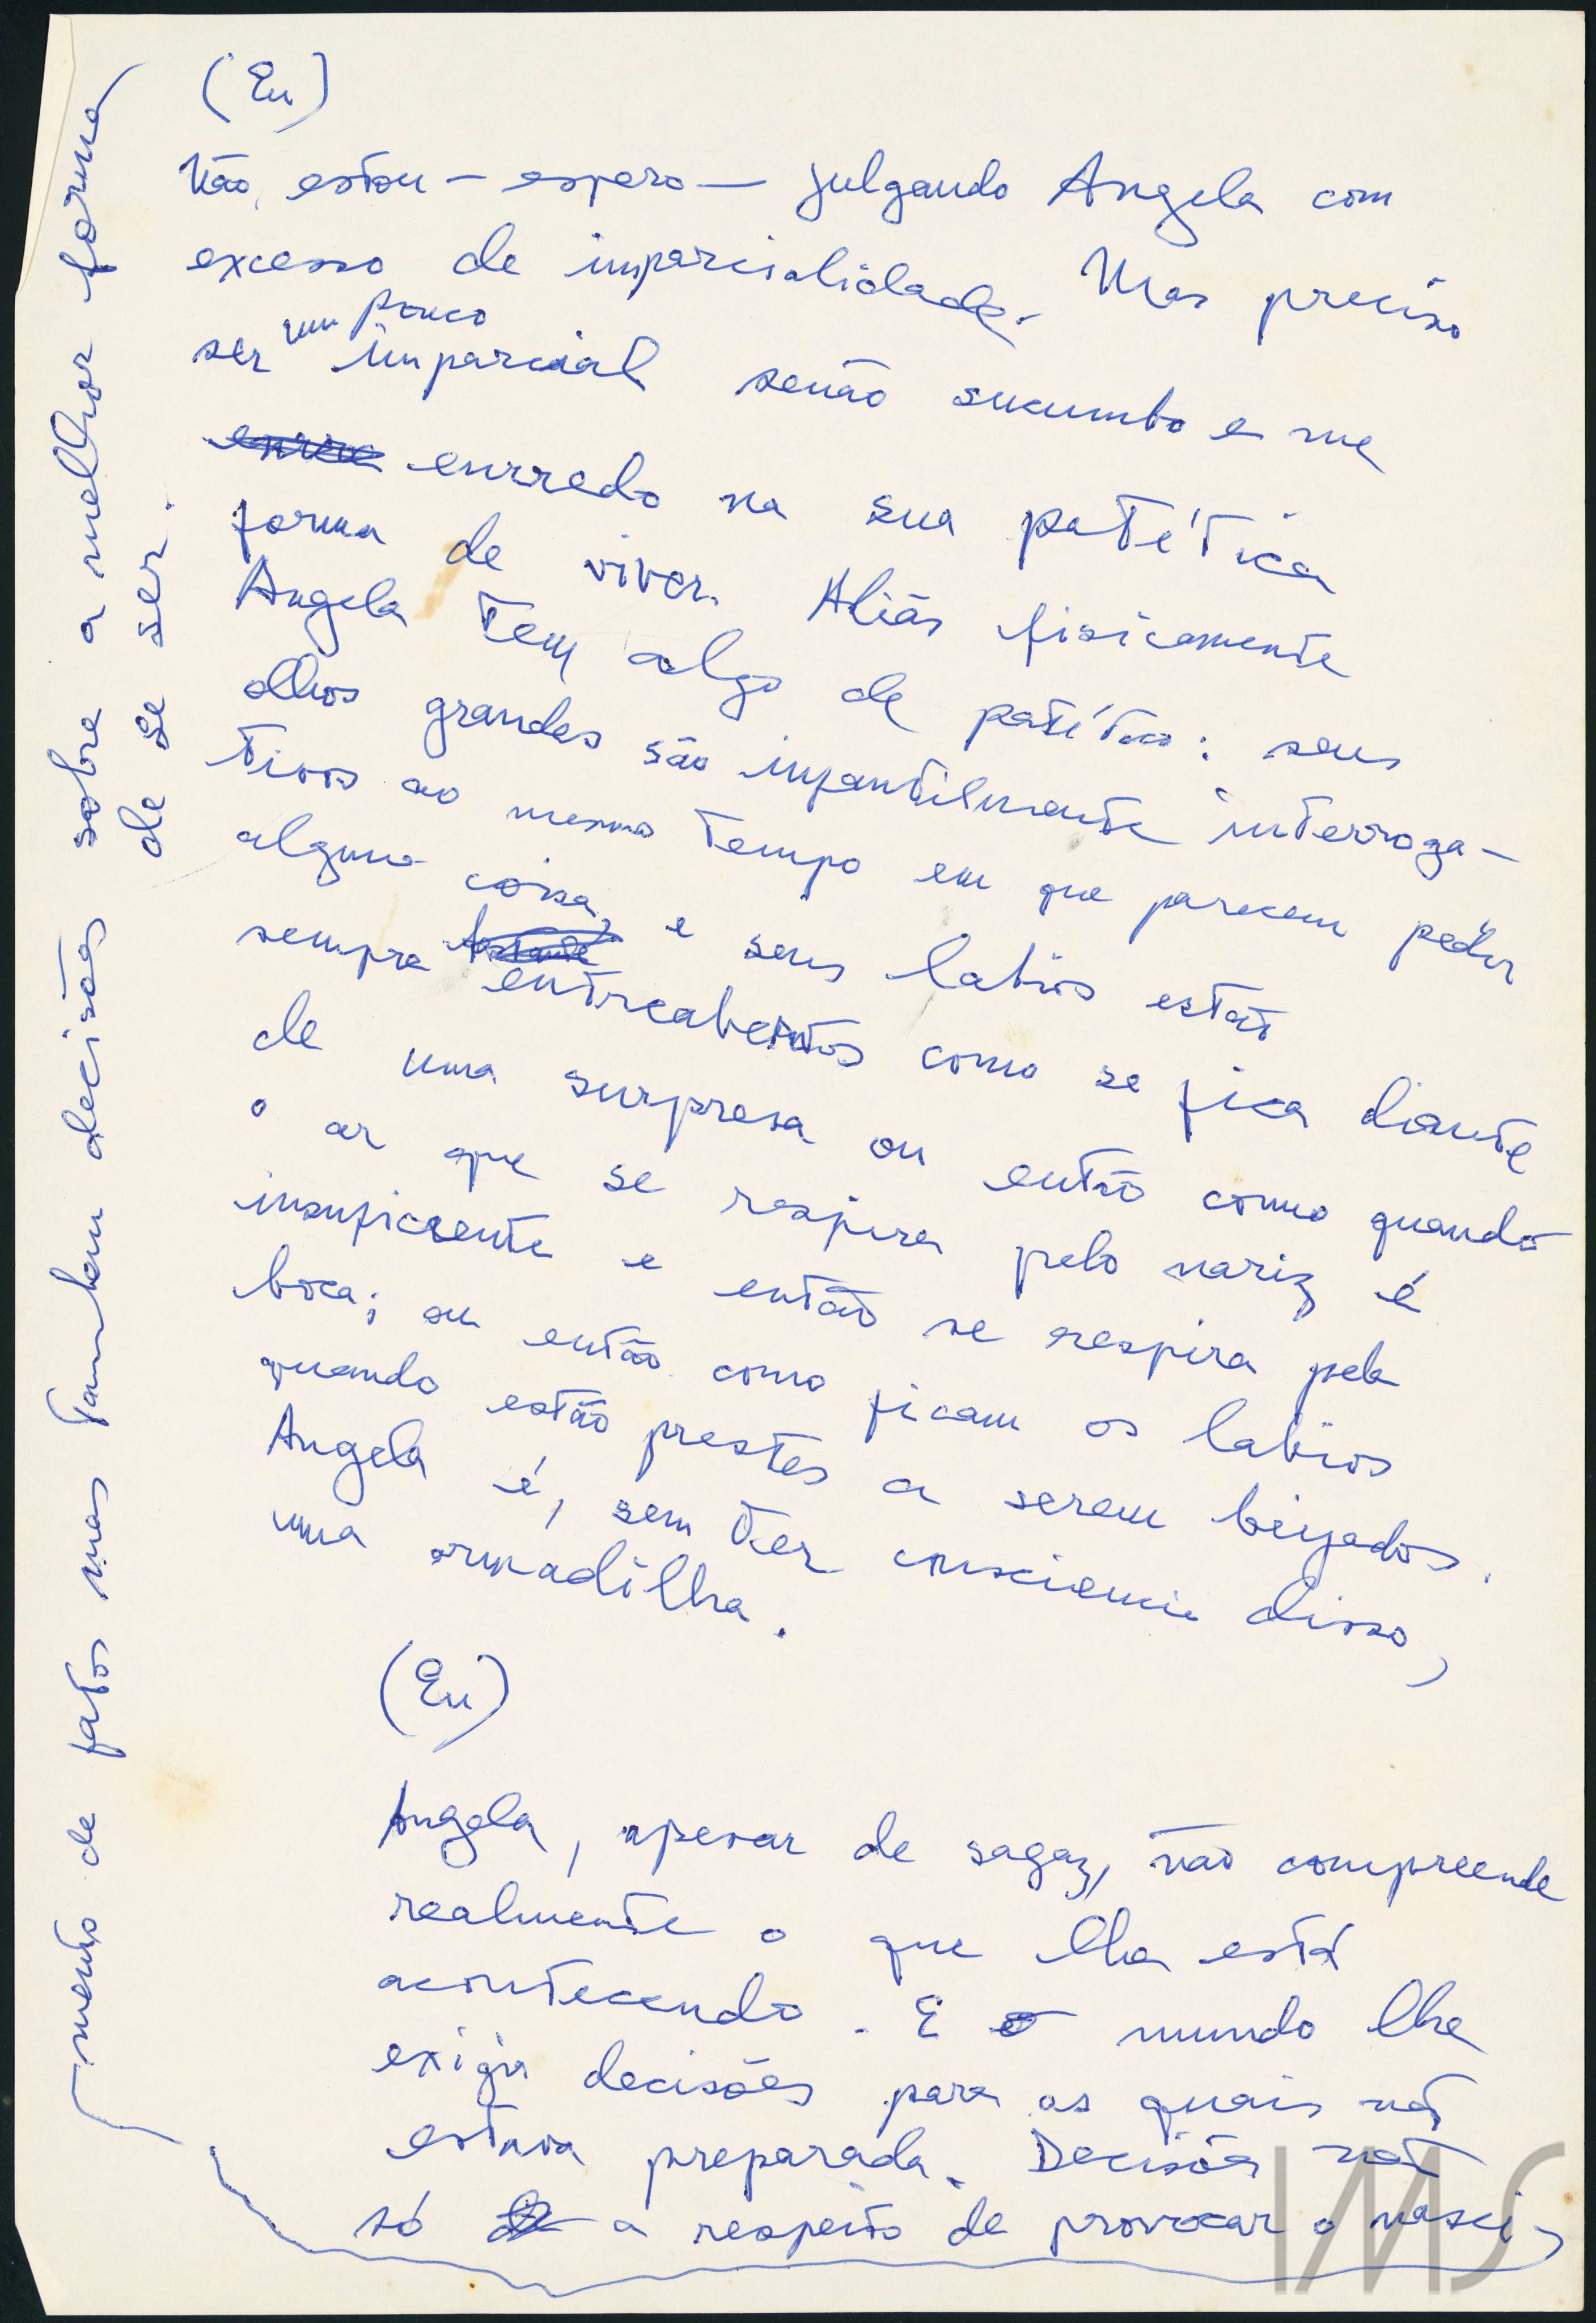 (Eu)
Não estou — espero — julgando Angela com
excesso de imparcialidade. Mas preciso
ser um pouco imparcial senão sucumbo e me
enrredo na sua patética
forma de viver. Aliás fisicamente
Angela tem algo de patético: seus
olhos grandes são infantilmente interroga-
tivos ao mesmo tempo em que parecem pedir
alguma coisa, e seus labios estão
sempre entreabertos como se fica diante
de uma surpresa ou então como quando
o ar que se respira pelo nariz é
insuficiente e então se respira pela
boca; ou então como ficam os labios
quando estão prestes a serem beijados.
Angela é, sem ter consciencia disso,
uma armadilha.
(Eu)
Angela, apesar de sagaz, não compreende
realmente o que lhe está
acontecendo. E o mundo lhe
exigia decisões para as quais não
estava preparada. Decisões não
só a respeito de provocar o nasci-
mento de fatos mas tambem decisões sobre a melhor forma
de se ser.
IMS